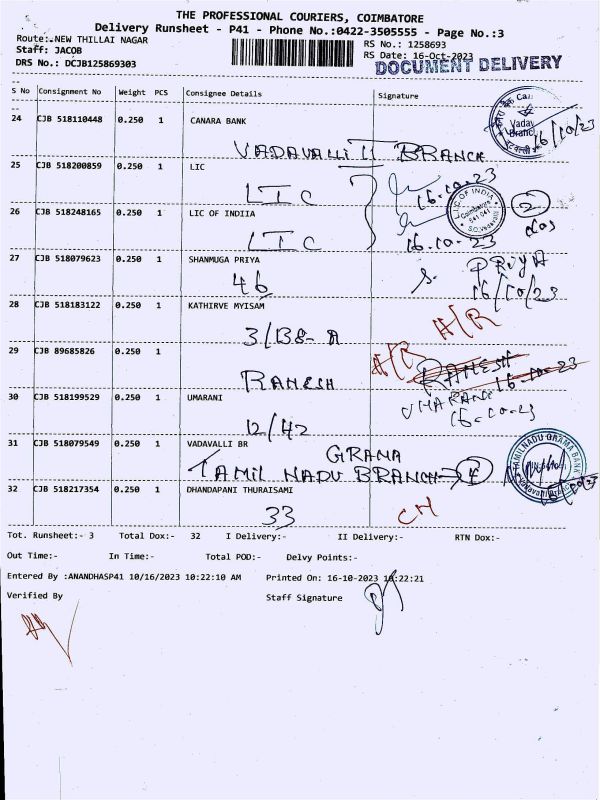 THE PROFESSIONAL COURIERS, COIMBATORE
Delivery Runsheet - P41 - Phone No.:0422-3505555 - Page No.:3
Route:-NEW THILLAI NAGAR
RS No.: 1258693
Staff: JACOB
RS Date: 16-Oct-2023
DRS No.: DCJB125869303
DOCUMENT DELIVERY
S No Consignment No Weight PCS Consignee Details Signature
24 CJB 518110448 0.250 1 CANARA BANK
16/10/23
VADAVALLI II BRANCH
25 CJB 518200859 0.250 1 LIC
LIC 16.10.23
LIC OF INDIA Coimbatore 641 041
2
26 CJB 518248165 0.250 1 LIC OF INDIIA
LIC 16.10.23
27 CJB 518079623 0.250 1 SHANMUGA PRIYA
46 S. PRIYA
16/10/23
28 CJB 518183122 0.250 1 KATHIRVE MYISAM
3/138-A A/R
29 CJB 89685826 0.250 1
RAMESH A/R RAMESH 16.10.23
30 CJB 518199529 0.250 1 UMARANI
UMARANI
16-10-23
12/42
31 CJB 518079549 0.250 1 VADAVALLI BR
GRAMA
TAMIL NADU BRANCH
TAMILNADU GRAMA BANK
32 CJB 518217354 0.250 1 DHANDAPANI THURAISAMI
33 CH
Tot. Runsheet:- 3 Total Dox:- 32 I Delivery:- II Delivery:- RTN Dox:-
Out Time:- In Time:- Total POD:- Delvy Points:-
Entered By :ANANDHASP41 10/16/2023 10:22:10 AM Printed On: 16-10-2023 10:22:21
Verified By Staff Signature